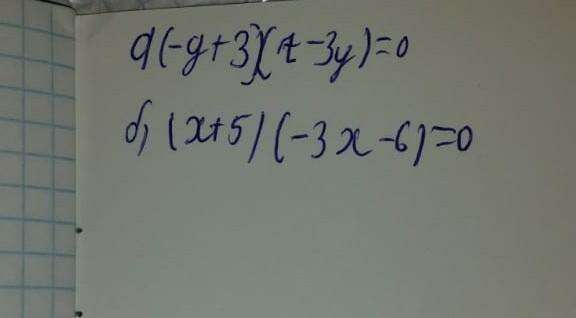 а) (-y+3)(t-3y)=0
б) (x+5)(-3x-6)=0